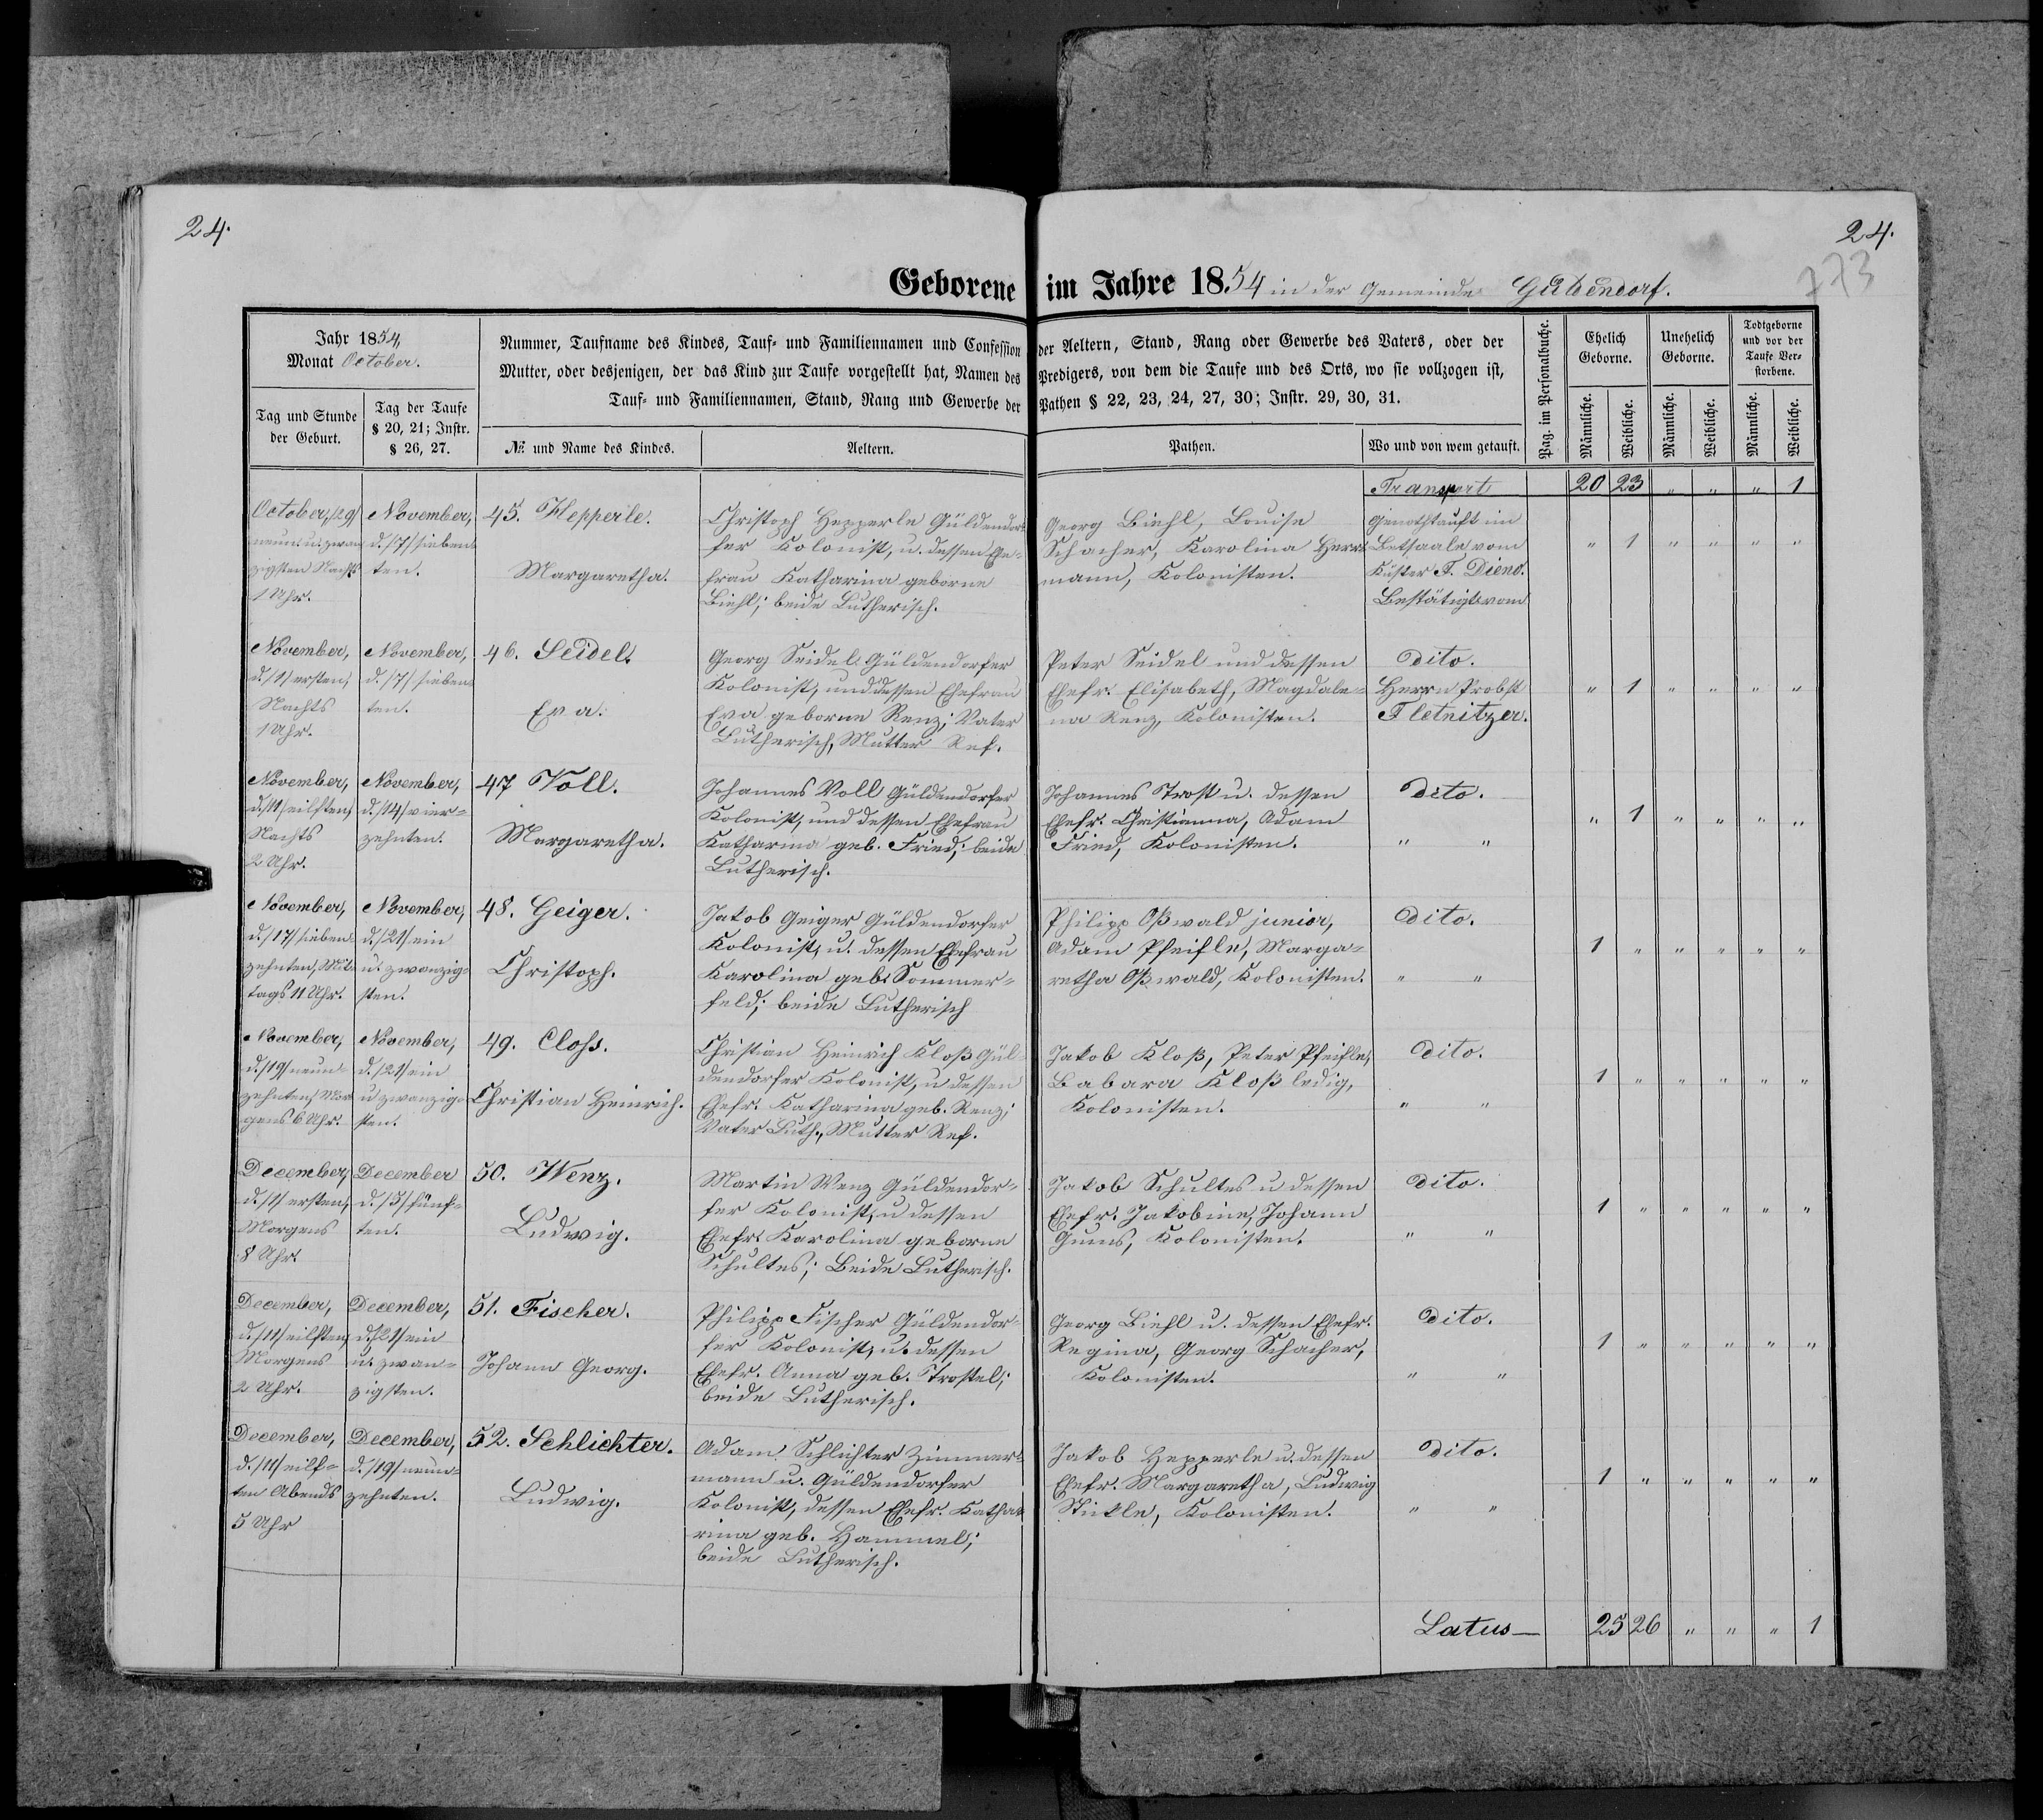 24.
24.
773
Geborene im Jahre 1854 in der Gemeinde Güldendorf.
Jahr 1854,
Monat October.
Tag und Stunde der Geburt.
Tag der Taufe § 20, 21; Instr. § 26, 27.
Nummer, Taufname des Kindes, Tauf- und Familiennamen und Confession der Aeltern, Stand, Rang oder Gewerbe des Vaters, oder der
Mutter, oder desjenigen, der das Kind zur Taufe vorgestellt hat, Namen des Predigers, von dem die Taufe und des Orts, wo sie vollzogen ist,
Tauf- und Familiennamen, Stand, Rang und Gewerbe der Pathen § 22, 23, 24, 27, 30; Instr. 29, 30, 31.
№ und Name des Kindes.
Aeltern.
Pathen.
Wo und von wem getauft.
Pag. im Personalbuche.
Ehelich Geborne.
Unehelich Geborne.
Todtgeborne und vor der Taufe Verstorbene.
Männliche.
Weibliche.
Männliche.
Weibliche.
Männliche.
Weibliche.
Transport 20 23 " " " 1
October, /29/
neun u. zwan-
zigsten Nachts
1 Uhr.
November,
d. /7/ sieben-
ten.
45. Hepperle.
Margaretha.
Christoph Hepperle Güldendor-
fer Kolonist, u. dessen Ehe-
frau Katharina geborne
Biehl; beide Lutherisch.
Georg Biehl, Louise
Schacher, Karolina Herr-
mann, Kolonisten.
Genothtauft im
Betsaale vom
Küster F. Diend.
Bestätigt vom
" 1 " " " "
November,
d. /1/ ersten,
Nachts
1 Uhr.
November,
d. /7/ sieben-
ten.
46. Seidel.
Eva.
Georg Seidel Güldendorfer
Kolonist, und dessen Ehefrau
Eva geborne Renz; Vater
Lutherisch, Mutter Ref.
Peter Seidel und dessen
Ehefr. Elisabeth, Magdale-
na Renz, Kolonisten.
dito.
Herrn Probst
Fletnitzer.
" 1 " " " "
November,
d. /11/ eilften,
Nachts
2 Uhr.
November,
d. /14/ vier-
zehnten.
47 Voll.
Margaretha.
Johannes Voll Güldendorfer
Kolonist, und dessen Ehefrau
Katharina geb. Fried; beide
Lutherisch.
Johannes Trost u. dessen
Ehefr. Christianna, Adam
Fried, Kolonisten.
dito.
" "
" 1 " " " "
November,
d. /17/ sieben-
zehnten, Mit-
tags 11 Uhr.
November,
d. /21/ ein
u. zwanzig-
sten.
48. Geiger.
Christoph.
Jakob Geiger Güldendorfer
Kolonist, u. dessen Ehefrau
Karolina geb. Sommer-
feld; beide Lutherisch
Philipp Oßwald junior,
Adam Pfeifle, Marga-
retha Oßwald, Kolonisten.
dito.
" "
1 " " " " "
November,
d. /19/ neun-
zehnten, Mor-
gens 6 Uhr.
November,
d. /21/ ein
u zwanzig-
sten.
49. Closs.
Christian Heinrich.
Christian Heinrich Kloß Gül-
dendorfer Kolonist, u dessen
Ehefr. Katharina geb. Renz;
Vater Luth., Mutter Ref.
Jakob Kloß, Peter Pfeifle,
Babara Kloß ledig,
Kolonisten.
dito.
" "
1 " " " " "
December,
d. /1/ ersten,
Morgens
8 Uhr.
December
d. /5/ fünf-
ten.
50. Wenz.
Ludwig.
Martin Wenz Güldendor-
fer Kolonist, u dessen
Ehefr. Karolina geborne
Schultes; Beide Lutherisch.
Jakob Schultes u dessen
Ehefr. Jakobine, Johann
Gums, Kolonisten.
dito.
" "
1 " " " " "
December,
d. /11/ eilften,
Morgens
2 Uhr.
December,
d. /21/ ein
u. zwan-
zigsten.
51. Fischer.
Johann Georg.
Philipp Fischer Güldendor-
fer Kolonist, u. dessen
Ehefr. Anna geb. Trostel;
beide Lutherisch.
Georg Biehl u. dessen Ehefr.
Regina, Georg Schacher,
Kolonisten.
dito.
" "
1 " " " " "
December,
d. /11/ eilf-
ten Abends
5 Uhr
December,
d. /19/ neun-
zehnten.
52. Schlichter.
Ludwig.
Adam Schlichter Zimmer-
mann u. Güldendorfer
Kolonist, dessen Ehefr. Katha-
rina geb. Hammel;
beide Lutherisch.
Jakob Hepperle u. dessen
Ehefr. Margaretha, Ludwig
Stickle, Kolonisten.
dito.
" "
1 " " " " "
Latus— 25 26 " " " 1